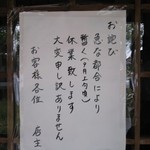 お詫び
急な都合により
暫く（十月上旬頃）
休業致します
大変申し訳ありません
お客様各位
店主